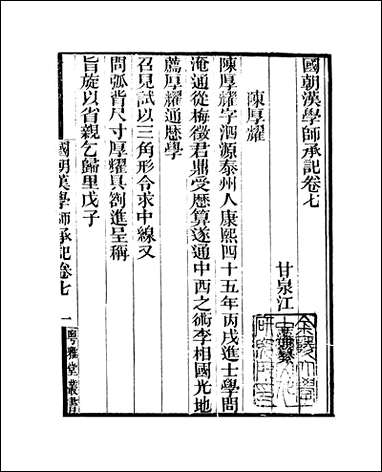 國朝漢學師承記卷七
甘泉江
陳厚耀
陳厚耀字泗源泰州人康熙四十五年丙戌進士學問
淹通從梅徵君鼎受曆算遂通中西之術李相國光地
薦厚耀通曆學
召見試以三角形令求中線又
問弧背尺寸厚耀具劄進呈稱
旨旋以省親乞歸里戊子
國朝漢學師承記卷七
一
粵雅堂叢書